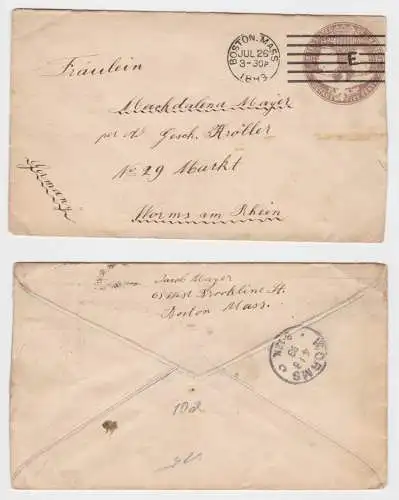 BOSTON, MASS.
JUL 26
3-30P
1893
E
Fräulein
Machdalena Mayer
per Ad Gesch. Kröller
No 29 Markt
Worms am Rhein
Germany
Jacob Mayer
Brookline St.
Boston Mass.
WORMS
102